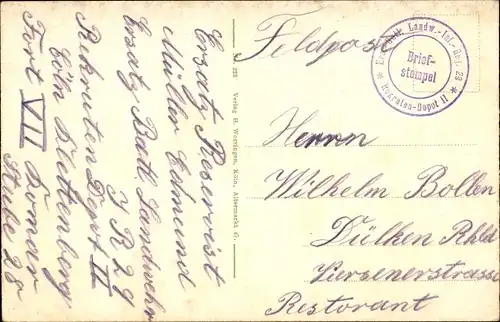 Feldpost
Ersatz Batl. Landw.-Inf.-Reg. 29
Brief-
stempel
* Rekruten-Depot II *
Herrn
Wilhelm Bollen
Dülken Rhld
Viersenerstrasse
Restorant
Verlag H. Worringen, Köln, Altermarkt 67.
Ersatz Reservist
Müller Edmund
Ersatz Batl. Landwehr
J R 29
Rekruten Depot II
Cöln Klettenberg
Fort VII Komar
Stube 28